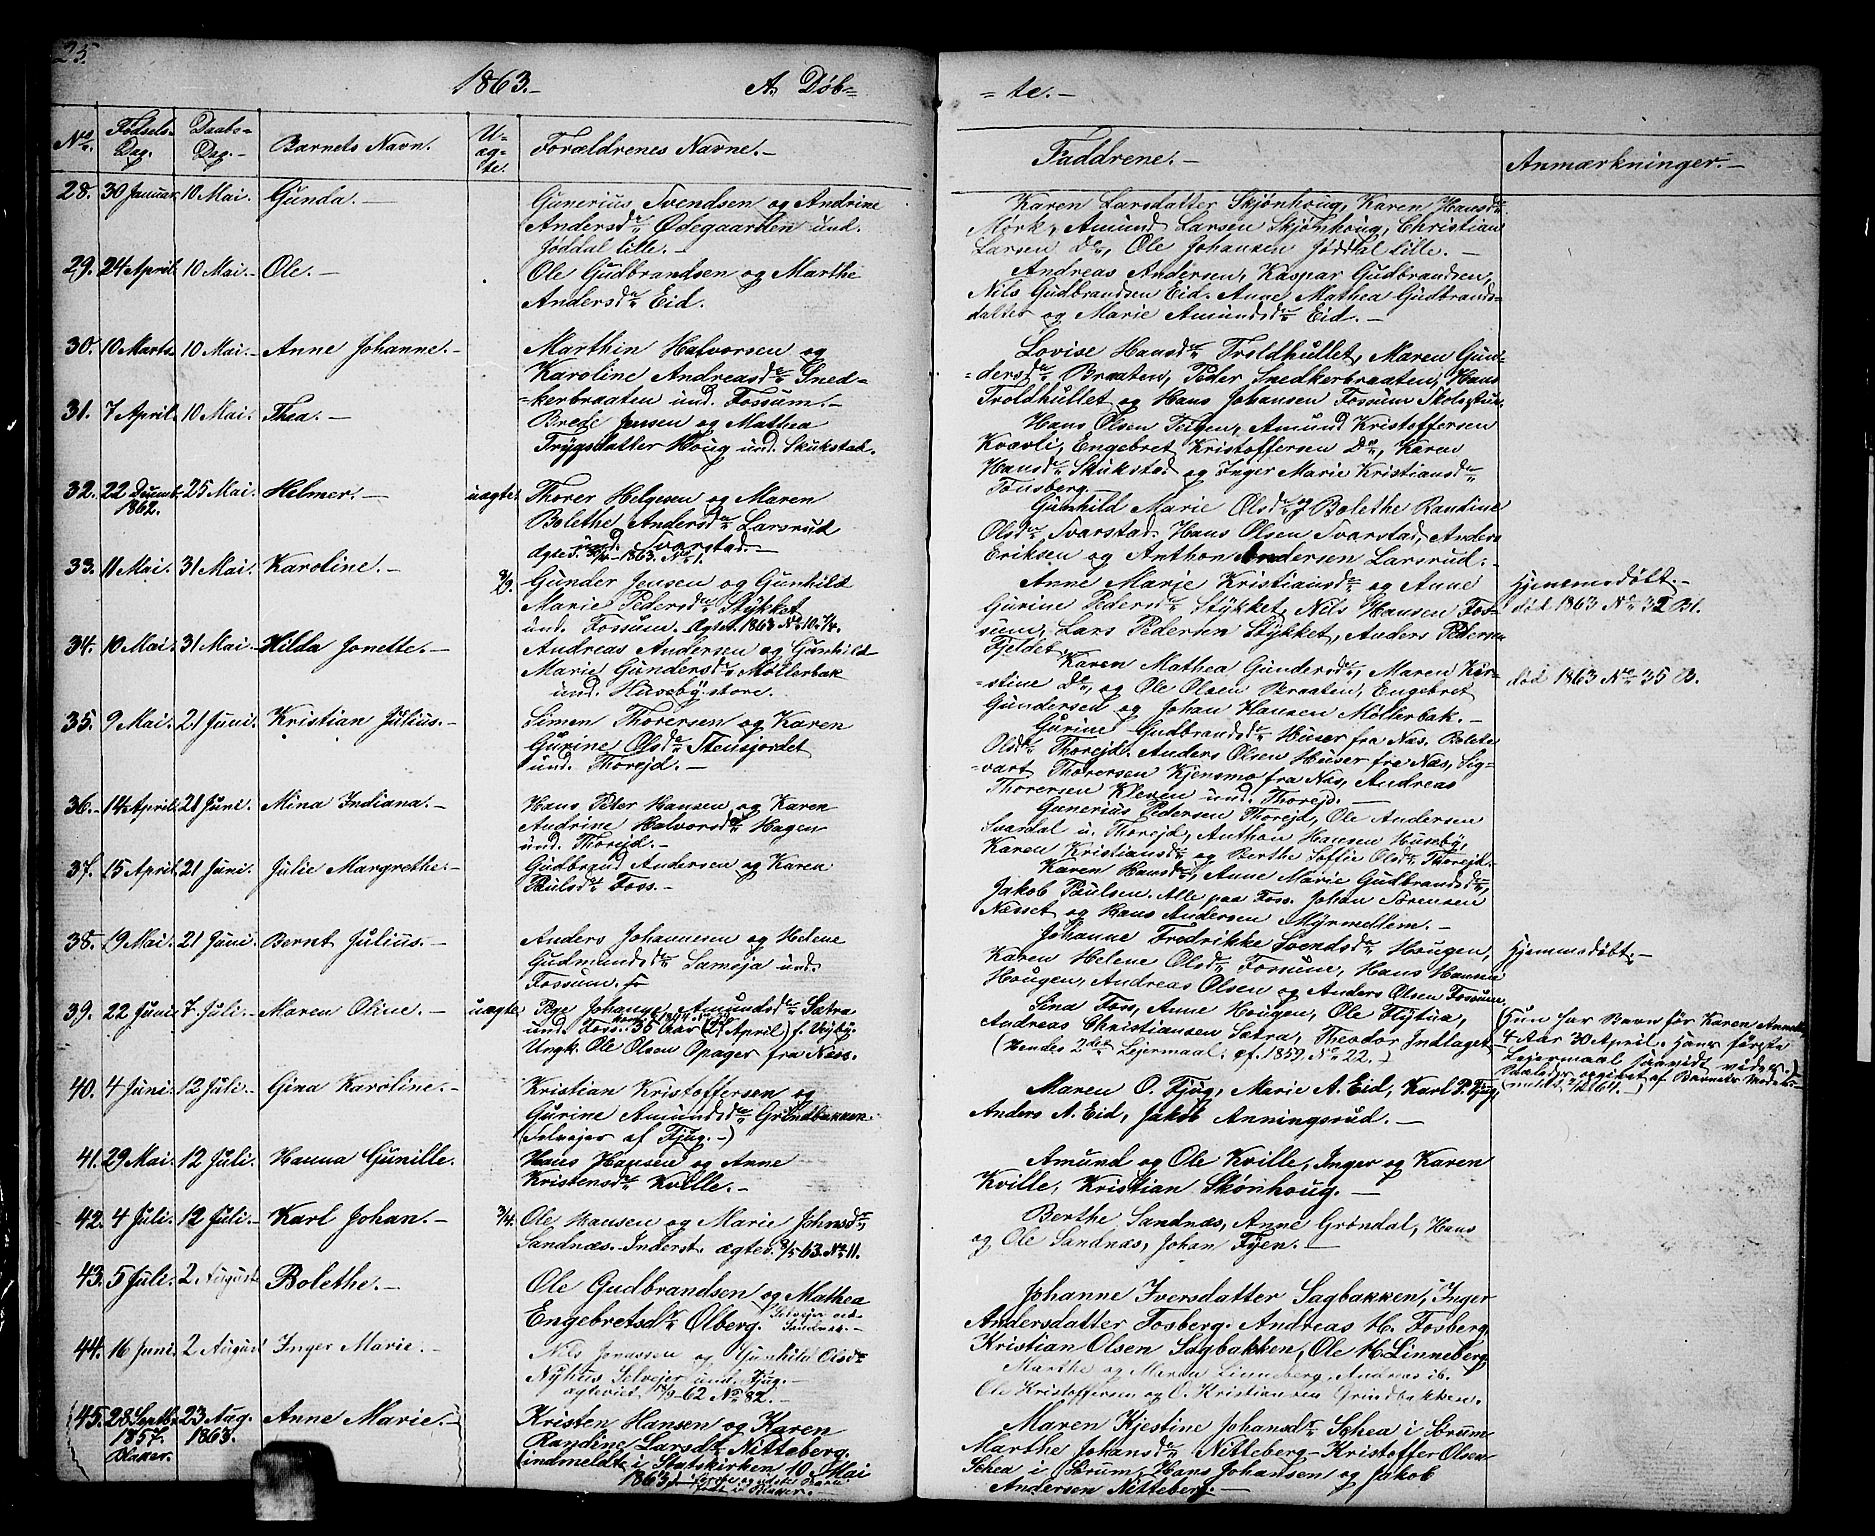 25.
1863.-
A. Døb=
= te.-
No.
Fødsels-
Dag.
Daabs-
Dag.-
Barnets Navn.
U-
æg-
te.
Forældrenes Navne.-
Faddrene.-
Anmærkninger.-
28. 30 Januar. 10 Mai. Gunda.-
Gunerius Svendsen og Andrine
Andersdr Ødegaarden und.
Joddal lille.-
Karen Larsdatter Skjønhoug, Karen Hansdr
Mørk, Amund Larsen Skjønhoug, Christian
Larsen Do, Ole Johansen Joddal lille.-
29. 24 April. 10 Mai.- Ole.-
Ole Gudbrandsen og Marthe
Andersdr Eid.
Andreas Andersen, Kaspar Gudbrandsen,
Nils Gudbrandsen Eid. Anne Mathea Gudbrands=
datter og Marie Amundsdr Eid.-
30. 10 Marts. 10 Mai.- Anne Johanne.-
Marthin Halvorsen og
Karoline Andreasdr Sned=
=kerbraaten und. Fossum.-
Lovise Hansdr Troldhullet, Maren Gun=
=dersdr Braaten, Peder Snedkerbraaten, Hans
Troldhullet og Hans Johansen Fossum
31. 7 April. 10 Mai. Thea.-
Brede Jensen og Mathea
Trygsdatter Houg und. Skukstad.
Hans Olsen Teigen, Amund Kristoffersen
Kværli, Engebret Kristoffersen Do, Karen
Hansdr Skukstad og Inger Marie Kristiansdr
Tønsberg
32. 22 Decemb. 25 Mai. Helmer.- uægte.
1862.
Thorer Helgesen og Maren
Bolethe Andersdr Larsrud
und. Svarstad.-
1863. No 1.
Gunhild Marie Olsdr og Bolethe Randine
Olsdr Svarstad. Hans Olsen Svarstad, Anders
Eriksen og Anthon Andersen Larsrud.-
33. 11 Mai. 31 Mai. Karoline.-
Gunder Jensen og Gunhild
Marie Pedersdr Stykket
und. Fossum. Ægtev. 1863 No 10.
Anne Marie Kristiansdr og Anne
Gurine Pedersdr Stykket, Nils Hansen Fos=
sum, Lars Pedersen Stykket, Anders Pedersen
Fjeldet.
Hjemmedøbt.-
død 1863 No 32 B.
34. 10 Mai. 31 Mai.- Hilda Jonette.-
Andreas Andersen og Gunhild
Marie Gundersdr Møllerbak
und. Huseby store.
Karen Mathea Gundersdr, Maren Kir=
=stine Do, og Ole Olsen Braaten, Engebret
Gundersen og Johan Hansen Møllerbak.-
død 1863 No 35 B.
35. 9 Mai. 21 Juni. Kristian Julius.-
Simen Thorersen og Karen
Gurine Olsdr Stensjordet
und. Thorejd.-
Gurine Gudbrandsdr Huser fra Næs. Bolete
Olsdr Thorejd. Anders Olsen Huser fra Næs, Sig=
=vart Thorersen Kjensmo fra Næs, Andreas
Thorersen Kleven und. Thorejd.-
36.- 14 April. 21 Juni. Mina Indiana.-
Hans Peter Hansen og Karen
Andrine Halvorsdr Hagen
und. Thorejd.-
Gunerius Pedersen Thorejd, Ole Andersen
Svardal u. Thorejd, Anthon Hansen Huseby,
Karen Kristiansdr og Berthe Sofie Olsdr Thorejd.
37. 15 April. 21 Juni. Julie Margrethe.-
Gudbrand Andersen og Karen
Paulsdr Foss.-
Karen Hansdr, Anne Marie Gudbrandsdr,
Jakob Paulsen. Alle paa Foss. Johan Sørensen
Næsset og Hans Andersen Myrmellem.-
38. 19 Mai. 21 Juni. Bernt Julius.-
Anders Johannesen og Helene
Gudmundsdr Sameja und.
Fossum.
Johanne Fredrikke Svendsdr Hougen,
Karen Helene Olsdr Fossum, Hans Hansen
Hougen, Andreas Olsen og Anders Olsen Fossum.
Hjemmedøbt.-
39. 22 Juni 7 Juli.- Maren Oline.- uægte.
Pige Johanne Amundsdr Sætra
und. Foss. 35 Aar (24 April) f.
Ungk. Ole Olsen Opager fra Næss.
Sina Foss, Anne Hougen, Ole Flytua,
Andreas Christiansen Sætra, Theodor Indlaget.
(Hendes 2det Lejermaal, cf. 1859 No 22.-)
(Hun har Barn før Karen
4 Aar 30 April. Hans første
Lejermaal saavidt vides.
opgivet af Barnets Moder.
40. 4 Juni. 12 Juli.- Gina Karoline.-
Kristian Kristoffersen og
Gurine Amundsdr Grindbakken.
(Selvejer af Fjug.-)
Maren O. Fjug, Marie A. Eid, Karl P. Fjug,
Anders A. Eid, Jakob Anningsrud.-
41. 29 Mai. 12 Juli. Hanna Gunille.
Hans Hansen og Anne
Kristensdr Kville.-
Amund og Ole Kville, Inger og Karen
Kville, Kristian Skønhoug.-
42. 4 Juli. 12 Juli.- Karl Johan.-
Ole Hansen og Marie Johnsdr
Sandnæs. Inderst. ægtev. 63. No 11.
Berthe Sandnæs, Anne Grøndal, Hans
og Ole Sandnæs, Johan Fyen.-
43. 5 Juli. 2 August Bolethe.-
Ole Gudbrandsen og Mathea
Engebretsdr Ølberg.
Johanne Iversdatter Sagbakken, Inger
Andersdatter Fosberg. Andreas H. Fosberg,
Kristian Olsen Sagbakken, Ole H. Linneberg
44. 16 Juni. 2 August Inger Marie.-
Nils Jonassen og Gunhild Olsdr
Nyhus Selvejer und. Fjug.-
ægteviet 62 No 82.-
Marthe og Maren Linneberg. Andreas ib.
Ole Kristoffersen og O. Kristiansen Grindbakken.
45. 28 Septbr. 23 Aug. Anne Marie.-
1857. 1863.
Blaker.
Kristen Hansen og Karen
Randine Larsdr Nitteberg.
(indmeldt i Statskirken 10 Mai
1863)
Maren Kjestine Johansdr Schea i Sørum
Marthe Johansdr Nitteberg - Kristoffer Olsen
Schea i Sørum, Hans Johansen og Jakob
Andersen Nitteberg.-